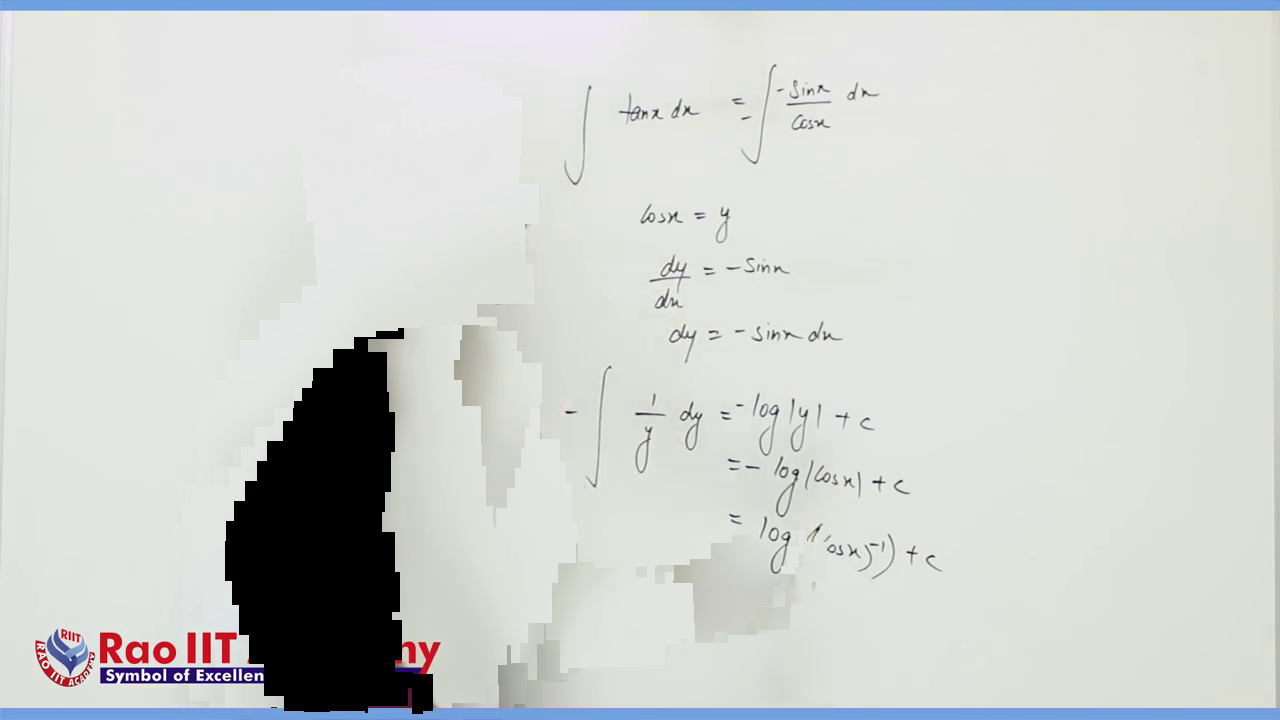 ∫ tanx dx = -∫ -sinx/cosx dx
cosx = y
dy/dx = -sinx
dy = -sinx dx
-∫ 1/y dy = -log|y| + c
= - log|cosx| + c
= log osx)⁻¹) + c
RIIT
RAO IIT ACADEMY
Rao IIT
Symbol of